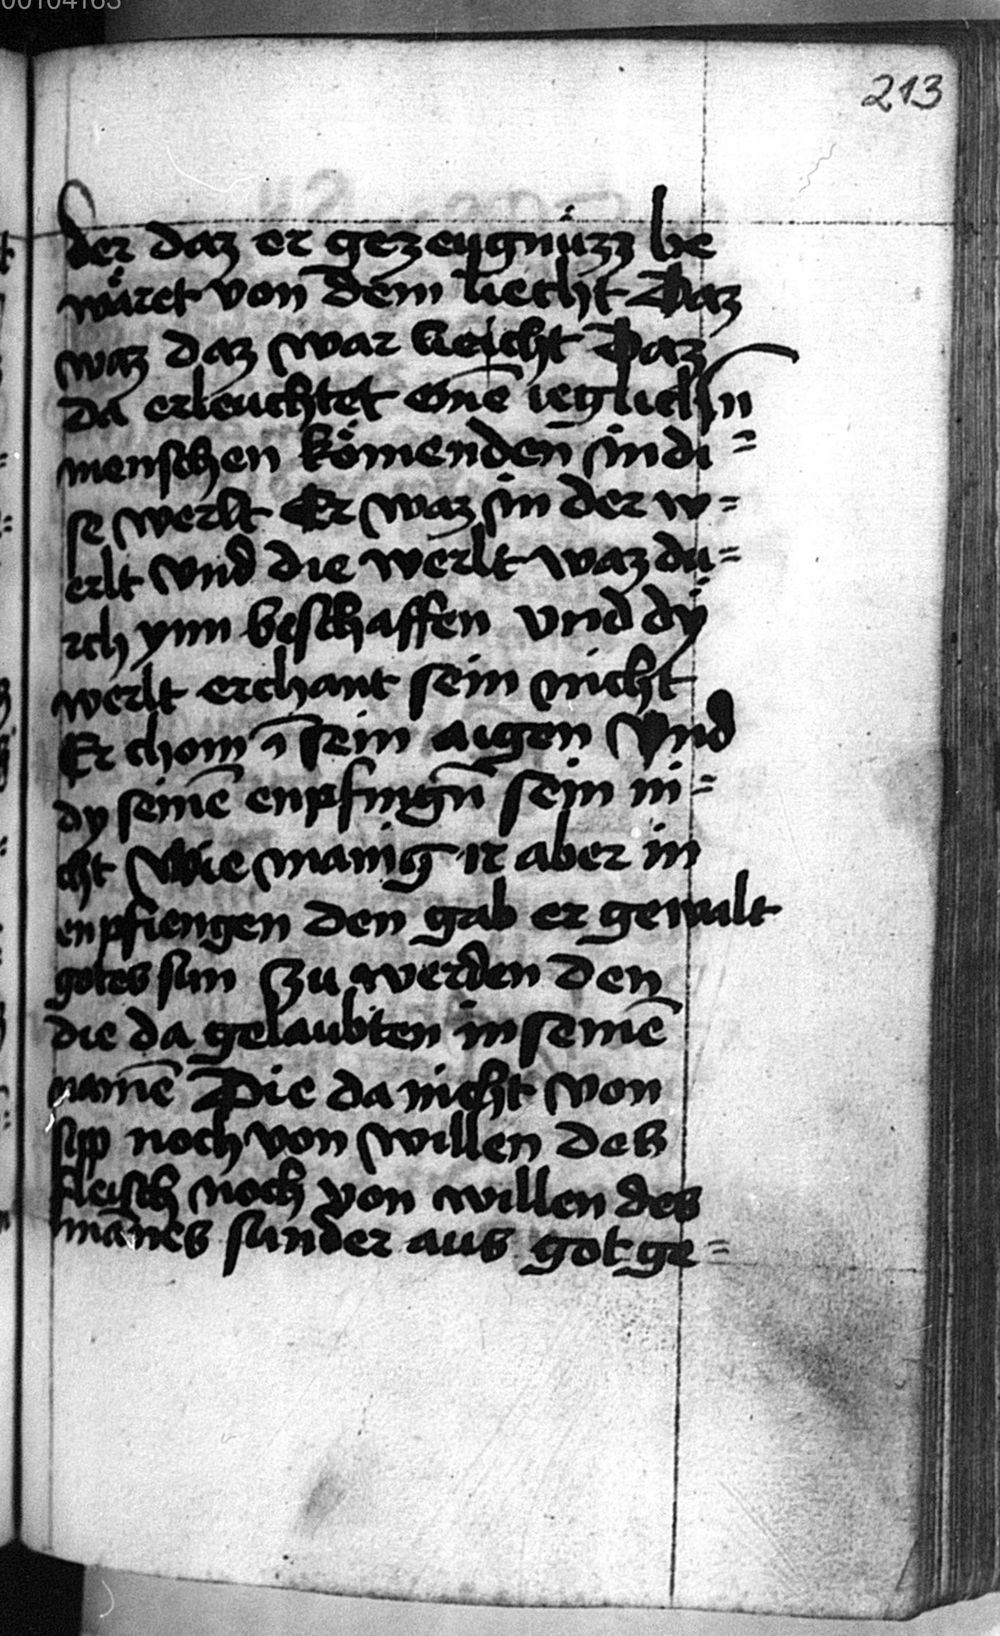 00104163
213
der daz er gezeugnüzz be
wäret von dem liecht Daz
waz daz war lieicht Daz
da erleuchtet eine̅ ieglichn̅
menschen kömenden̅ in di=
se werlt Er waz in der w=
erlt vnd die werlt waz du=
rch ynn beschaffen vnd dÿ
werlt erchant sein nicht
Er chom i̅ sein aigen Vnd
dy seine̅ enpfingn̅ sein ni=
cht Wie manig ir aber in
enpfiengen den gab er gewalt
gotes sun zu werden den
die da gelaubten in seine̅
name̅ Die da nicht von
sipp noch von willen des
fleisch noch von willen des
ma̅nes sunder aus got ge=